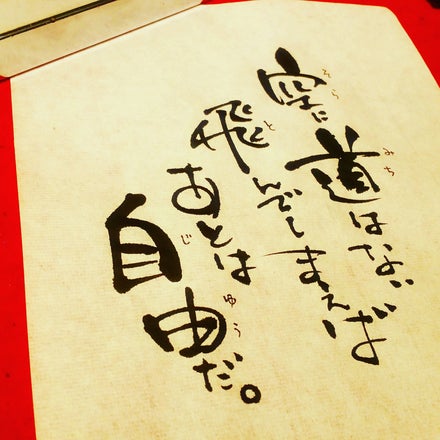 空に道はない
そら みち
飛んでしまえば
と
あとは
自由だ。
じ ゆう